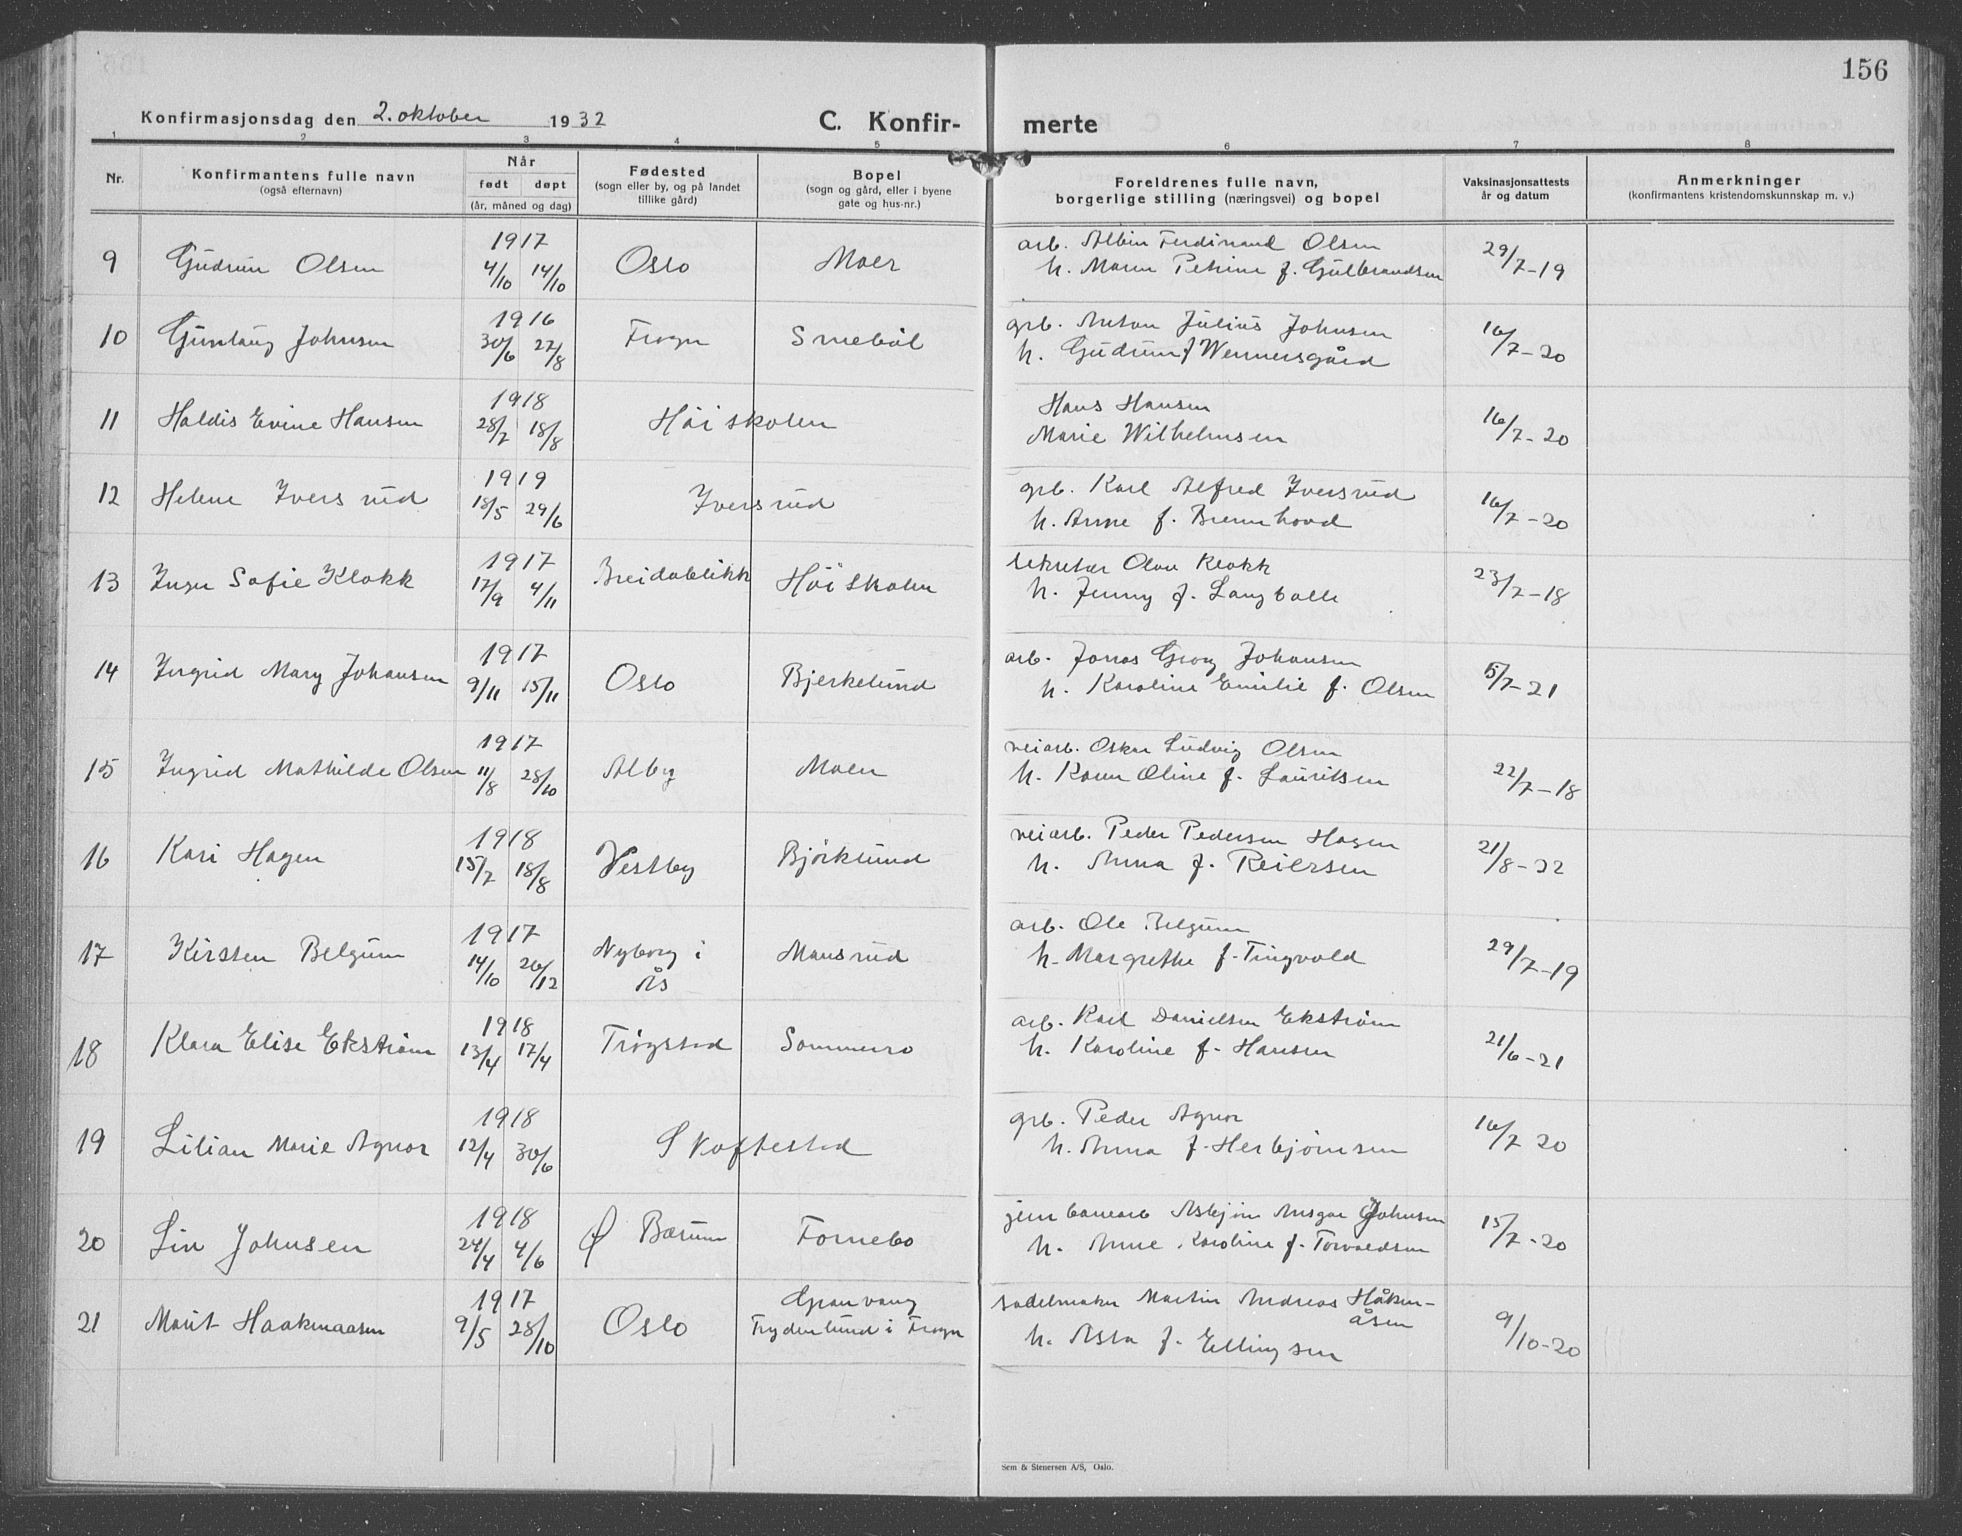 156
Konfirmasjonsdag den 2. oktober 1932
C. Konfir- merte
1 2 3 4 5 6 7 8
Nr.
Konfirmantens fulle navn
(også efternavn)
Når
født døpt
(år, måned og dag)
Fødested
(sogn eller by, og på landet
tillike gård)
Bopel
(sogn og gård, eller i byene
gate og hus-nr.)
Foreldrenes fulle navn,
borgerlige stilling (næringsvei) og bopel
Vaksinasjonsattests
år og datum
Anmerkninger
(konfirmantens kristendomskunnskap m. v.)
1917 arb. Albin Ferdinand Olsen
9 Gudrun Olsen 4/10 14/10 Oslo Moer h. Maren Petrine f. Gulbrandsen 29/7-19
1916 grb. Anton Julius Johnsen
10 Gunlaug Johnsen 30/6 27/8 Frogn Snebøl h. Gudrun f Wennersgård 16/7-20
1918 Hans Hansen
11 Haldis Evine Hansen 28/7 18/8 Höiskolen Marie Wilhelmsen 16/7-20
1919 grb. Karl Alfred Iversrud
12 Helene Iversrud 18/5 29/6 Iversrud h. Anne f. Brennhovd 16/7-20
1917 sekretær Olav Klokk
13 Inger Sofie Klokk 17/9 4/11 Breidablikk Höiskolen h. Jenny f. Langballe 23/7-18
1917 arb. Jonas Georg Johansen
14 Ingrid Mary Johansen 9/11 15/11 Oslo Bjerkelund h. Karoline Emilie f. Olsen 15/7-21
1917 veiarb. Oskar Ludvig Olsen
15 Ingrid Mathilde Olsen 11/8 28/10 Alby Moen h. Karen Oline f. Lauritsen 22/7-18
1918 veiarb. Peder Pedersen Hagen
16 Kari Hagen 15/7 18/8 Vestby Bjørklund h. Anna f. Reiersen 21/8-22
1917 arb. Ole Belgum
17 Kirsten Belgum 14/10 26/12 Nyborg i Ås Mansrud h. Margrethe f. Tingvold 29/7-19
1918 arb. Karl Danielsen Ekstrøm
18 Klara Elise Ekstrøm 13/4 17/4 Trøgstad Sommerro h. Karoline f. Hansen 21/6-21
1918 grb. Peder Agnor
19 Lilian Marie Agnor 12/4 30/6 Skoftestad h. Anna f. Herbjørnsen 16/7 20
1918 jernbanearb Asbjørn Ansgar Johnsen
20 Liv Johnsen 24/4 4/6 Ø Bærum Fornebo h. Anne Karoline f. Torvaldsen 15/7-20
1917 Granvang sadelmaker Martin Andreas Håken-
åsen
21 Marit Haakenaasen 9/5 28/10 Oslo Frydenlund i Frogn h. Asta f. Ellingsen 9/10-20
Sem & Stenersen A/S, Oslo.